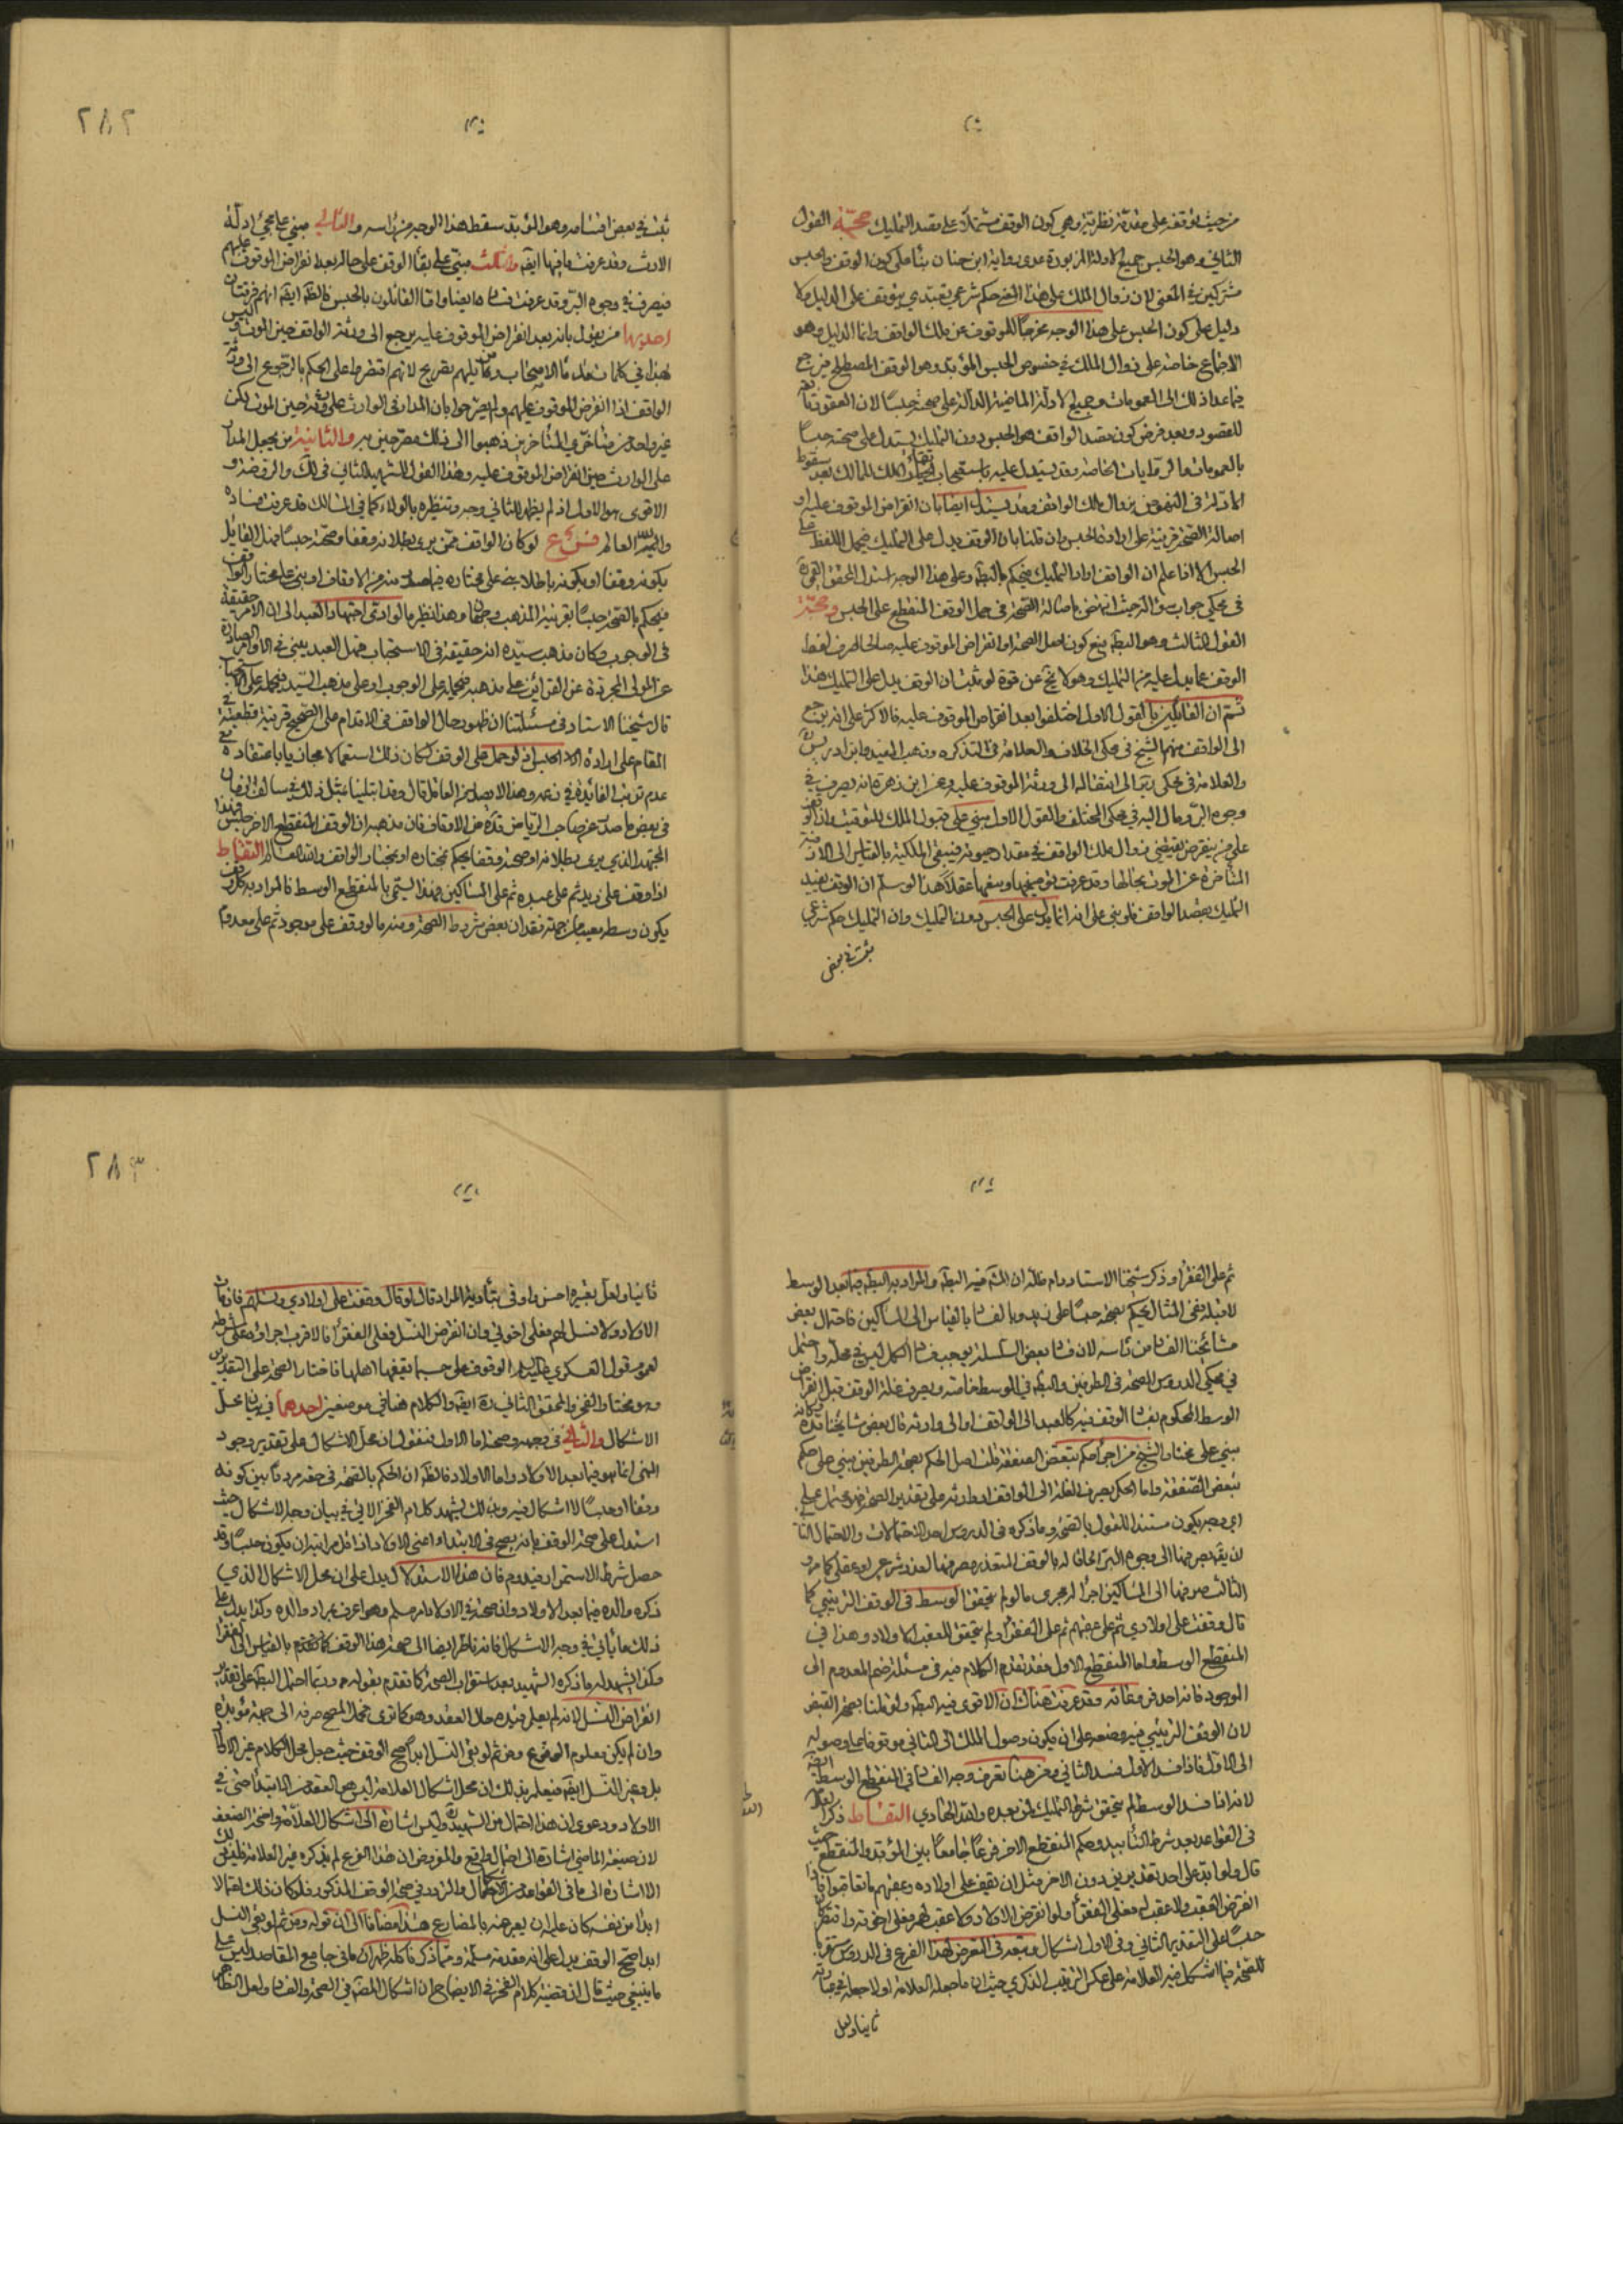 من حيث توقفه على مقدمة نظرية وهي كون الوقف مشتملا على قصد التمليك حجّة القول
الثاني وهو الحبس جميع الادلة المزبورة عدى رواية ابن حنان بناء على كون الوقف والحبس
مشتركين في المعنى لان زوال الملك على هذا المعنى حكم شرعي تعبدي يتوقف على الدليل ولا
دليل على كون الحبس على هذا الوجه مخرجا للموقوف عن ملك الواقف وانما الدليل وهو
الاجماع خاصة على زوال الملك في خصوص الحبس المؤبد وهو الوقف المصطلح فيرجع
فيما عدا ذلك الى العمومات وجميع الادلة الماضية الدالة على صحته حبسا لان العقود تابعة
للقصود وبعد فرض كون مقصد الواقف هو الحبس دون التمليك يستدل على صحته حبسا
بالعمومات والروايات الخاصة وقد يستدل عليه باستصحاب بقاء الملك للمالك بعد سقوط
الادلة في النهوض بزوال ملك الواقف وقد يستدل ايضا بان انقراض الموقوف عليه او
اصالة الصحة قرينة على ارادة الحبس وان قلنا بان الوقف يدل على التمليك فيحمل اللفظ على
الحبس الا اذا علم ان الواقف اراد التمليك فيحكم بالبطلان وعلى هذا الوجه استدل المحقق القمي ره
في محكي جواب سؤاله حيث انه تمسك باصالة الصحة في حمل الوقف المنقطع على الحبس وحجّة
القول الثالث وهو البطلان منع كون اصل الصحة او انقراض الموقوف عليه صالحا لصرف لفظ
الوقف عما يدل عليه من التمليك وهو لا يخ عن قوة لو ثبت ان الوقف يدل على التمليك هذا
ثم ان القائلين بالقول الاول اختلفوا بعد انقراض الموقوف عليه فالاكثر على انه يرجع
الى الواقف منهم الشيخ في محكي الخلاف والعلامة في التذكرة وذهب المفيد وابن ادريس
والعلامة في محكي ير الى انتقاله الى ورثة الموقوف عليه وعن ابن زهرة انه يصرف في
وجوه البر ومال اليه في محكي المختلف والقول الاول مبني على قبول الملك للتوقيت وان الوقف
على من ينقرض يقتضي زوال ملك الواقف في مقدار حيوته فيبقى الملكية بالقياس الى الازمنة
المتاخرة عن الموت بحالها وقد عرفت توضيحها وسقمها عقلا هذا لو سلم ان الوقف يفيد
التمليك بقصد الواقف فلو بني على انه انما يدل على الحبس دون التمليك وان التمليك حكم شرعي
ثبت في بعض
٢٨٢
ثبت في بعض اقسامه وهو المؤبد سقط هذا الوجه من راسه والثاني مبني على مجيء ادلة
الارث وقد عرفت ما فيها ايضا والثالث مبني على بقاء الوقف على حاله بعد انقراض الموقوف عليهم
فيصرف في وجوه البر وقد عرفت فساده ايضا واما القائلون بالحبس فالظ ايضا انهم فرقتان
احديهما من يقول بانه بعد انقراض الموقوف عليه يرجع الى ورثة الواقف حين الموت وليس
لهذا في كلمات قدماء الاصحاب ومن يليهم تصريح لانهم اقتصروا على الحكم بالرجوع الى ورثة
الواقف اذا انقرض الموقوف عليهم ولم يصرحوا بان المدار في الوارث على ورثته حين الموت لكن
غير واحد من متاخري المتأخرين ذهبوا الى ذلك مصرحين به والثانية من يجعل المدار
على الوارث حين انقراض الموقوف عليه وهذا القول للشهيد الثاني في لك والروضة و
الاقوى هو الاول اذ لم يظهر للثاني وجه وتنظيره بالولاء كما في المسالك قد عرفت فساده
والله العالم فرع لو كان الواقف ممن يرى بطلانه وقفا وصحته حبسا فهل القائل
بكونه وقفا او بكونه باطلا يبني على مختاره فيما صدر منه من الاوقاف او يبني على مختار الواقف
فيحكم بالصحة حبسا بقرينة المذهب وجهان وهذا نظير ما لو ادى اجتهاد العبد الى ان الامر حقيقة
في الوجوب وكان مذهب سيده انه حقيقة في الاستحباب فهل العبد يبني في الاوامر الصادرة
عن المولى المجردة عن القرائن على مذهبه فيحمله على الوجوب او على مذهب السيد فيحمله على الاستحباب
قال شيخنا الاستاد في مسئلتنا ان ظهور حال الواقف في الاقدام على الصحيح قرينة قطعية في
المقام على ارادة الحبس اذ لو حمل على الوقف لكان ذلك استعمالا مجازيا باعتقاده مع
عدم ترتب الفائدة في زعمه وهذا لا يصدر من العاقل قال وقد ابتلينا بمثل ذلك في سالف الزمان
في بعض ما صدر عن صاحب الرياض قده من الاوقاف فان مذهبه ان الوقف المنقطع الاخر حبس فهذا
المجتهد الذي يرى بطلانه او صحته وقفا يحكم بمختاره او بمختار الواقف والله العالم التقاط
اذا وقف على زيد ثم على عبده ثم على المساكين وهذا يسمى بالمنقطع الوسط فالمراد به كل وقف
يكون وسطه معيبا من جهة فقدان بعض شروط الصحة ومنه ما لو وقف على موجود ثم على معدوم
ثم على الفقراء وذكر شيخنا الاستاد دام ظله ان المش فيه البطلان والمراد به البطلان فيما بعد الوسط
لا قبله ففي المثال يحكم بصحته حبسا على زيد وبالفساد بالقياس الى المساكين فاحتمال بعض
مشايخنا الفساد من رأسه لان فساد بعض السلسلة يوجب فساد الكل ليس في محله واحتمل
في محكي الدروس الصحة في الطرفين والبطلان في الوسط خاصة ويصرف غلة الوقف قبل انقراض
الوسط المحكوم بفساد الوقف فيه كالعبد الى الواقف او الى وارثه قال بعض مشايخنا قده وكانه
مبني على مختار الشيخ من اجراء حكم تبعض الصفقة قلت اصل الحكم بصحة الطرفين مبني على حكم
تبعض الصفقة واما الحكم بصرف الغلة الى الواقف او وارثه على تقدير الصحة
اي وجه يكون مستندا للقول بالصحة وما ذكره في الدروس احد الاحتمالات والاحتمال الثاني
ان يصرفها الى وجوه البر الحاقا له بالوقف المتعذر مصرفها لعذر شرعي او عقلي كما مر و
الثالث صرفها الى المساكين اجراء له مجرى ما لو لم يتحقق الوسط في الوقف الترتيبي كما
قال وقفت على اولادي ثم على عقبهم ثم على الفقراء ولم يتحقق للعقب اولاد وهذا في
المنقطع الوسط واما المنقطع الاول فقد تقدم الكلام فيه في مسئلة ضم المعدوم الى
الموجود فانه احد فروعاته وقد عرفت هناك ان الاقوى فيه البطلان ولو قلنا بصحة القبض
لان الوقف الترتيبي فيه وضعه على ان يكون وصول الملك الى الثاني موقوفا على وصوله
الى الاول فاذا فسد الاول فسد الثاني ومن هنا تعرف وجه الفساد في المنقطع الوسط ايضا
لانه اذا فسد الوسط لم يتحقق شرط التمليك لمن بعده والله الهادي التقاط ذكر العلامة
في القواعد بعد شرط التأبيد وحكم المنقطع الاخر فرعا جامعا بين المؤبد والمنقطع حيث
قال ولو ابد على احد تقديرين دون الاخر مثل ان يقف على اولاده وعقبهم ما تعاقبوا فاذا
انقرض العقب ولا عقب له فعلى الفقراء ولو انقرض الاولاد ولا عقب لهم فعلى اخوته واقتصر كان
حبسا على التقدير الثاني وفي الاول اشكال وتبعه في التعرض لهذا الفرع في الدروس مقربا
للصحة فيما استشكل فيه العلامة على عكس الترتيب الذكري حيث ان ما جعله العلامة اولا جعله في عبارته
ثانيا ولعل
٢٨٣
ثانيا ولعل تعبيره احسن واوفى بتأدية المراد قال لو قال وقفت على اولادي ونسلهم فان مات
الاولاد ولا نسل لهم فعلى اخوتي وان انقرض النسل فعلى الفقراء فالاقرب اجراؤه على شرطه
لعموم قول العسكري عليه السلام الوقوف على حسب ما يقفها اهلها فاختار الصحة على التقديرين
وهو مختار الفخر والمحقق الثاني ره ايضا والكلام هنا في موضعين احدهما في بيان محل
الاشكال والثاني في وجهه وصحته اما الاول فنقول ان محل الاشكال على تقدير وجود
المعنى انما هو فيما بعد الاولاد واما الاولاد فالظ ان الحكم بالصحة في حقهم مردد بين كونه
وقفا او حبسا لا اشكال فيه وبذلك يشهد كلام الفخر الاتي في بيان وجه الاشكال حيث
استدل على صحة الوقف بانه يصح في الابتداء اعني الاولاد اذ اقل مراتبه ان يكون حبسا وقد
حصل شرط الاستمرار فيدوم فان هذا الاستدلال يدل على ان محل الاشكال الذي
ذكره والده فيما بعد الاولاد وان صحته في الاولاد امر مسلم وهو اعرف بمراد والده وكذا يدل على
ذلك ما ياتي في وجه الاشكال فانه ناظر ايضا الى صحة هذا الوقف كما تقدم بالقياس الى الفقراء
وكذا يشهد له ما ذكره الشهيد بعد استقراب الصحة كما تقدم بقوله ربما احتمل البطلان على تقدير
انقراض النسل لانه لم يعلم قيده حال العقد وهو كما ترى فحمل الصحيح صرفه الى جهة مؤبدة
وان لم يكن معلوم الوقوع ومن ثم لو بقي النسل ابدا صح الوقف حيث جعل محل الكلام غير الاولاد
بل وغير النسل ايضا فيعلم بذلك ان محل اشكال العلامة ليس هو العقد من الابتداء اعني في
الاولاد ودعوى ان هذا احتمال من الشهيد وليس اشارة الى اشكال العلامة واضحة الضعف
لان صيغة الماضي اشارة الى احتمال واقع والمفروض ان هذا الفرع لم يذكره غير العلامة فليس ذلك
الا اشارة الى ما في القواعد من الاحتمال والتردد في صحة الوقف المذكور فلو كان ذلك احتمالا
ابداه من نفسه كان عليه ان يعبر عنه بالمضارع هذا مضافا الى ان قوله ومن ثم لو بقي النسل
ابدا صح الوقف يدل على انه مقدمة مسلمة ومما ذكرنا كله ظهر ان ما في جامع المقاصد ليس على
ما ينبغي حيث قال ان قضية كلام الفخر في الايضاح ان اشكال المصنف في الصحة والفساد ولعل الظاهر